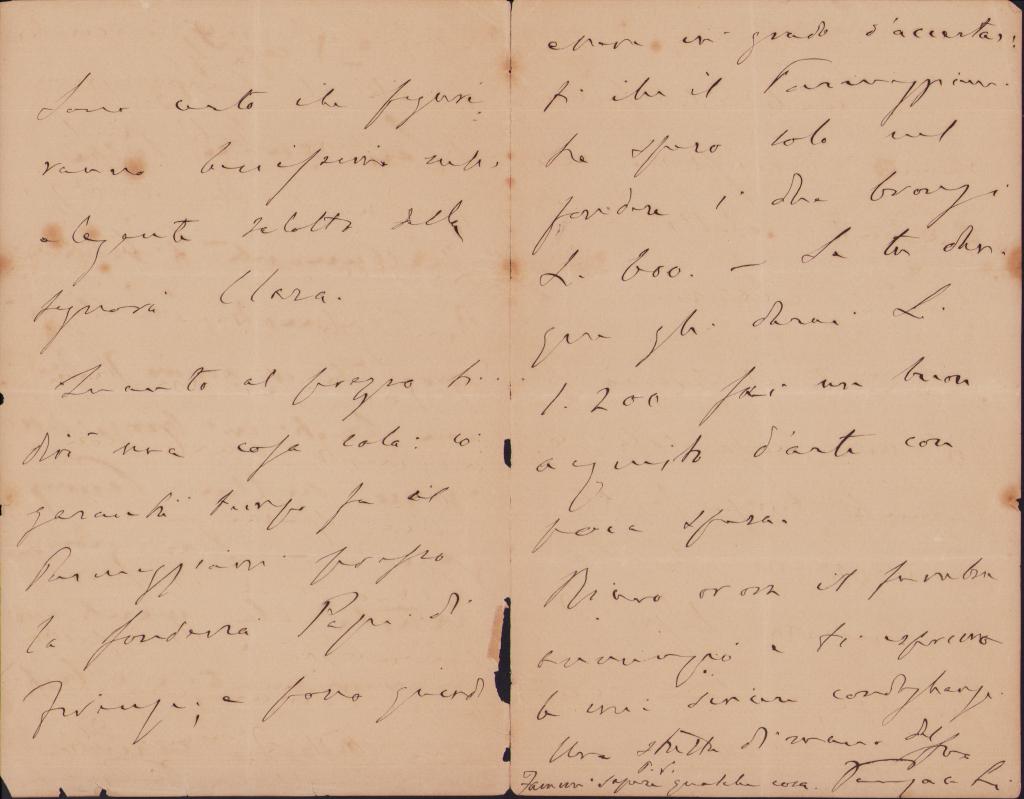 Sono certo che figure-
ranno benissimo nell'
elegante salotto della
signora Clara.
Quanto al prezzo ti
dirò una cosa sola: io
garantii tempo fa il
Parmeggiani presso
la fonderia Papi di
Firenze; e sono quindi
in grado d'accertar-
ti che il Parmeggiani
ha speso solo nel
fondere i due bronzi
L. 600. — Se tu dun-
que gli darai L.
1.200 fai un buon
acquisto d'arte con
poca spesa.
Ricevo orora il funebre
annunzio e ti esprimo
le mie sincere condoglianze.
Una stretta di mano dal
tuo
P.S.
Fammi sapere qualche cosa.